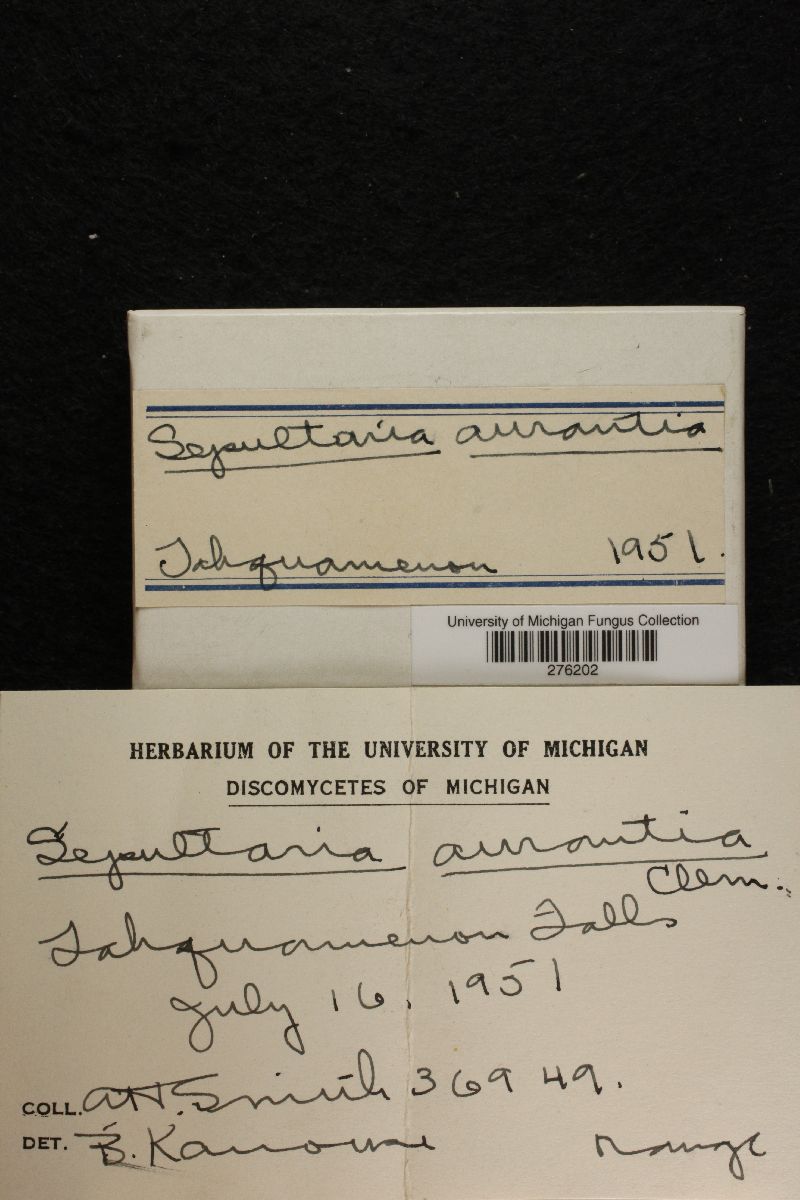 Sepultaria aurantia
Tahquamenon 1951.
University of Michigan Fungus Collection
276202
HERBARIUM OF THE UNIVERSITY OF MICHIGAN
DISCOMYCETES OF MICHIGAN
Sepultaria aurantia
Clem.
Tahquamenon Falls
July 16, 1951
COLL. AH. Smith 36949.
DET. B. Kanouse